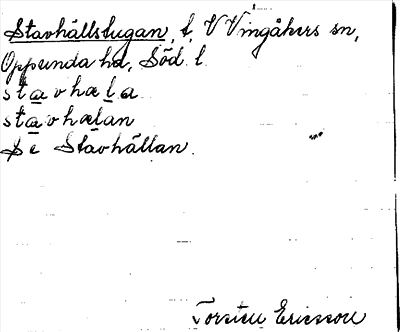 Stavhällstugan, t, V Vingåkers sn,
Oppunda hd, Söd. l.
stavhæla
stavhælan
Se Stavhällan.
Torsten Ericsson